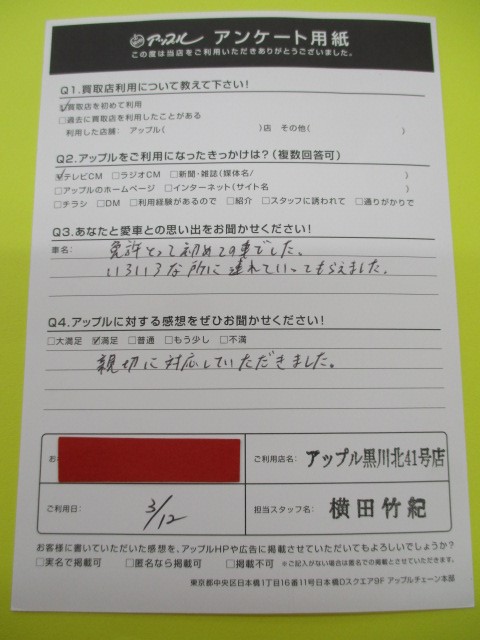 アップル アンケート用紙
この度は当店をご利用いただきありがとうございました。
Q1.買取店利用について教えて下さい!
☑買取店を初めて利用
□過去に買取店を利用したことがある
利用した店舗: アップル( )店 その他( )
Q2.アップルをご利用になったきっかけは?(複数回答可)
☑テレビCM □ラジオCM □新聞・雑誌(媒体名/ )
□アップルのホームページ □インターネット(サイト名 )
□チラシ □DM □利用経験があるので □紹介 □スタッフに誘われて □通りがかりで
Q3.あなたと愛車との思い出をお聞かせください!
車名: 免許とって初めての車でした。
いろいろな所に連れていってもらえました。
Q4.アップルに対する感想をぜひお聞かせください!
□大満足 ☑満足 □普通 □もう少し □不満
親切に対応していただきました。
お
ご利用店名: アップル黒川北41号店
ご利用日: 3/12
担当スタッフ名: 横田竹紀
お客様に書いていただいた感想を、アップルHPや広告に掲載させていただいてもよろしいでしょうか?
□実名で掲載可 □匿名なら掲載可 □掲載不可 ※ご記入がない場合は匿名での掲載とさせていただきます。
東京都中央区日本橋1丁目16番11号日本橋Dスクエア9F アップルチェーン本部